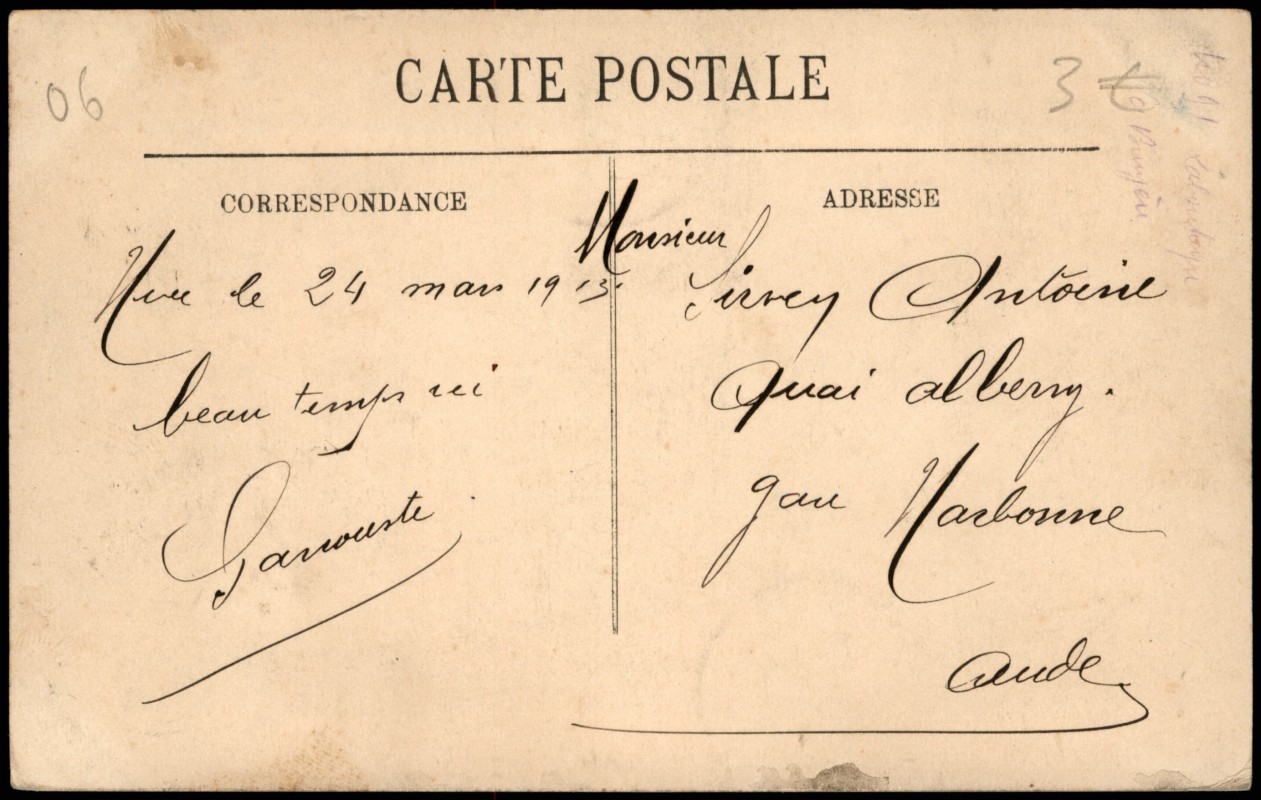 CARTE POSTALE
06
3
CORRESPONDANCE
Nice le 24 mars 1913
beau temps ici
Garrouste
ADRESSE
Monsieur
Sirvey Antoine
Quai alberny.
gare Narbonne
Aude